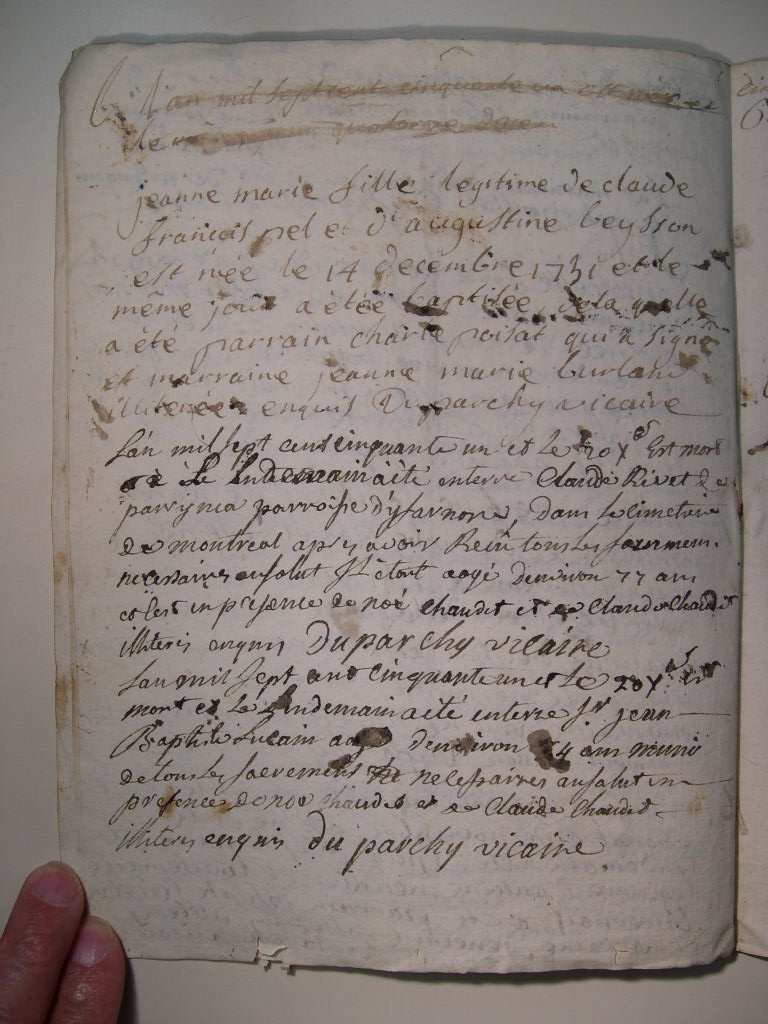 L'an mil sept cent cinquante un est mort et
le quatorze
jeanne marie fille legitime de claude
françois pel et d'augustine beysson
est née le 14 decembre 1751 et le
même jour a étée baptisée, de la quelle
a été parrain charle poisat qui a signé
et marraine jeanne marie burland
illiterée enquis Duparchy vicaire
L'an mil sept cent cinquante un et le 20 Xes Est mort
et le lendemain a été enterré Claude Rivet de
parroisse d'ysarnore, dans le cimetiere
de montreal apres avoir Receu tous les sacremens
necessaires au salut Il etoit aagé denviron 77 ans
et cest en presence de noé chaudet et de Claude Chaudet
illiteris enquis Duparchy vicaire
L'an mil sept cent cinquante un et Le 20 Xes est
mort et le lendemain a été enterre Sr jean
Baptiste aagé denviron 54 ans muni
de tous les sacremens necessaires au salut en
presence de noé chaudet et de Claude Chaudet
illiteris enquis du parchy vicaire